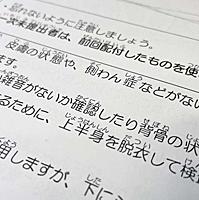 れないように注意しましょう。
次未提出者は、前回配付したものを使
皮膚の状態や、側わん症などがない
雑音がないか確認したり背骨の状
るために、上半身を脱衣して検
用しますが、下に